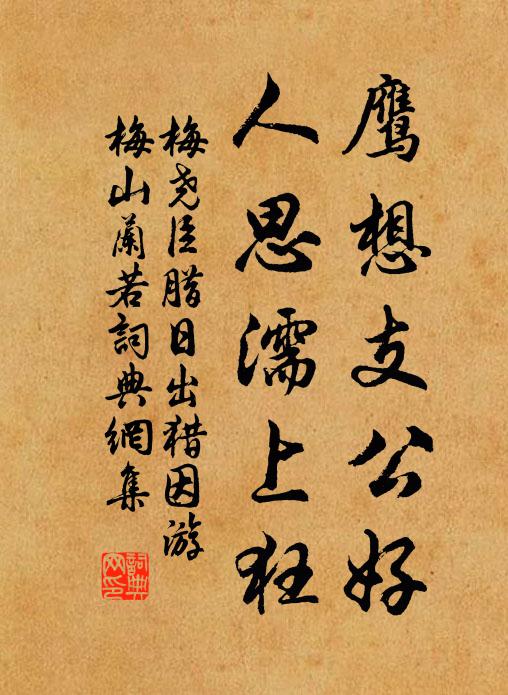 鹰想支公好
人思濡上狂
梅尧臣腊日出猎因游
梅山蘭若詞典網集
詞典
网印